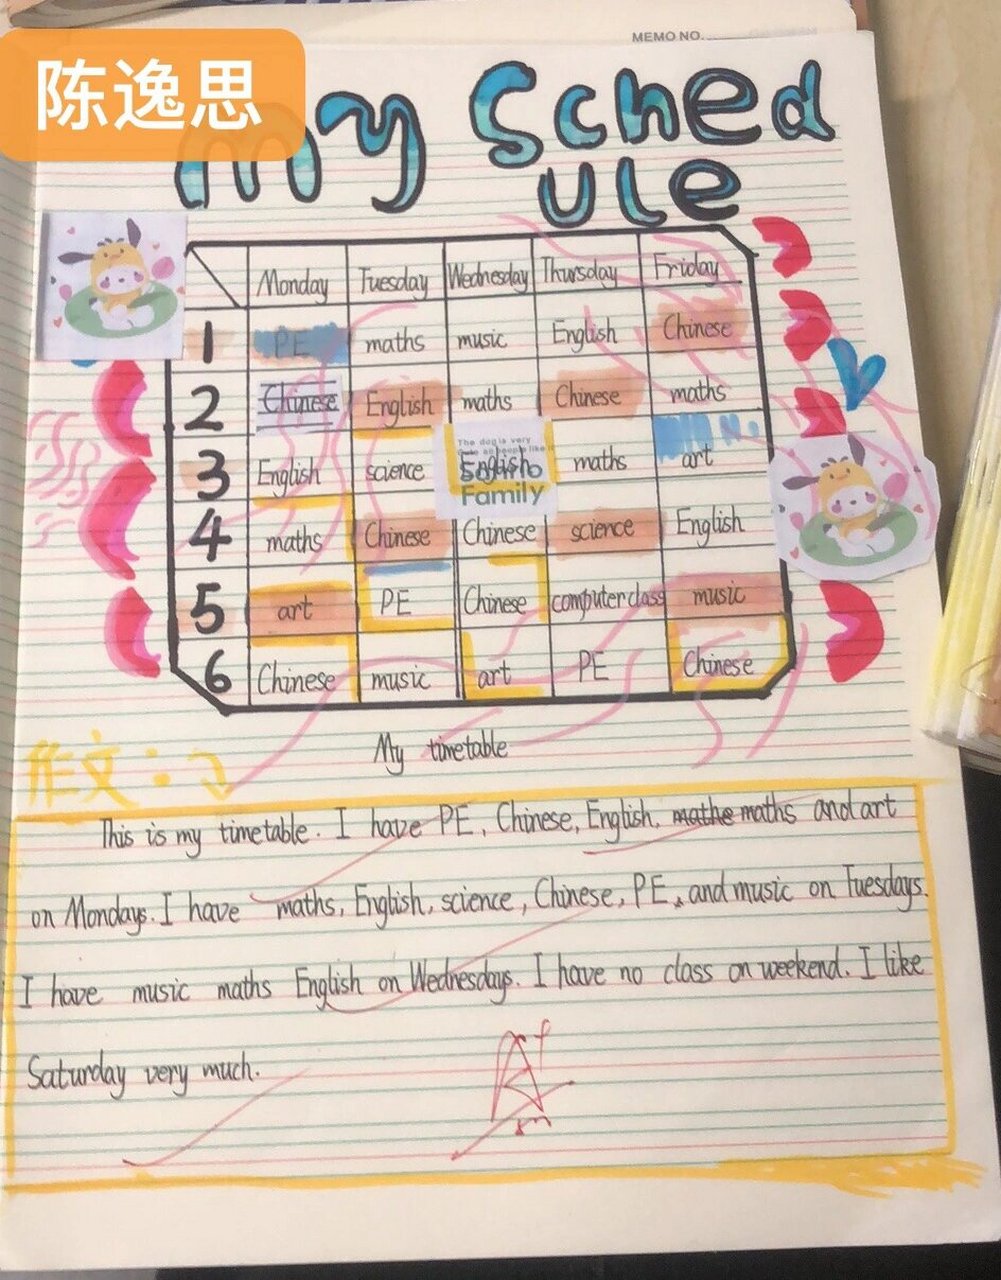 MEMO NO.
陈逸思
My Sched
ule
Monday Tuesday Wednesday Thursday Friday
1 PE maths music English Chinese
2 Chinese English maths Chinese maths
The dog is very
cute so people like it
3 English science English maths art
Family
4 maths Chinese Chinese science English
5 art PE Chinese computer class music
6 Chinese music art PE Chinese
My timetable
作文:
This is my timetable. I have PE, Chinese, English, mathe maths and art
on Mondays. I have maths, English, science, Chinese, PE, and music on Tuesdays.
I have music maths English on Wednesdays. I have no class on weekend. I like
Saturday very much.